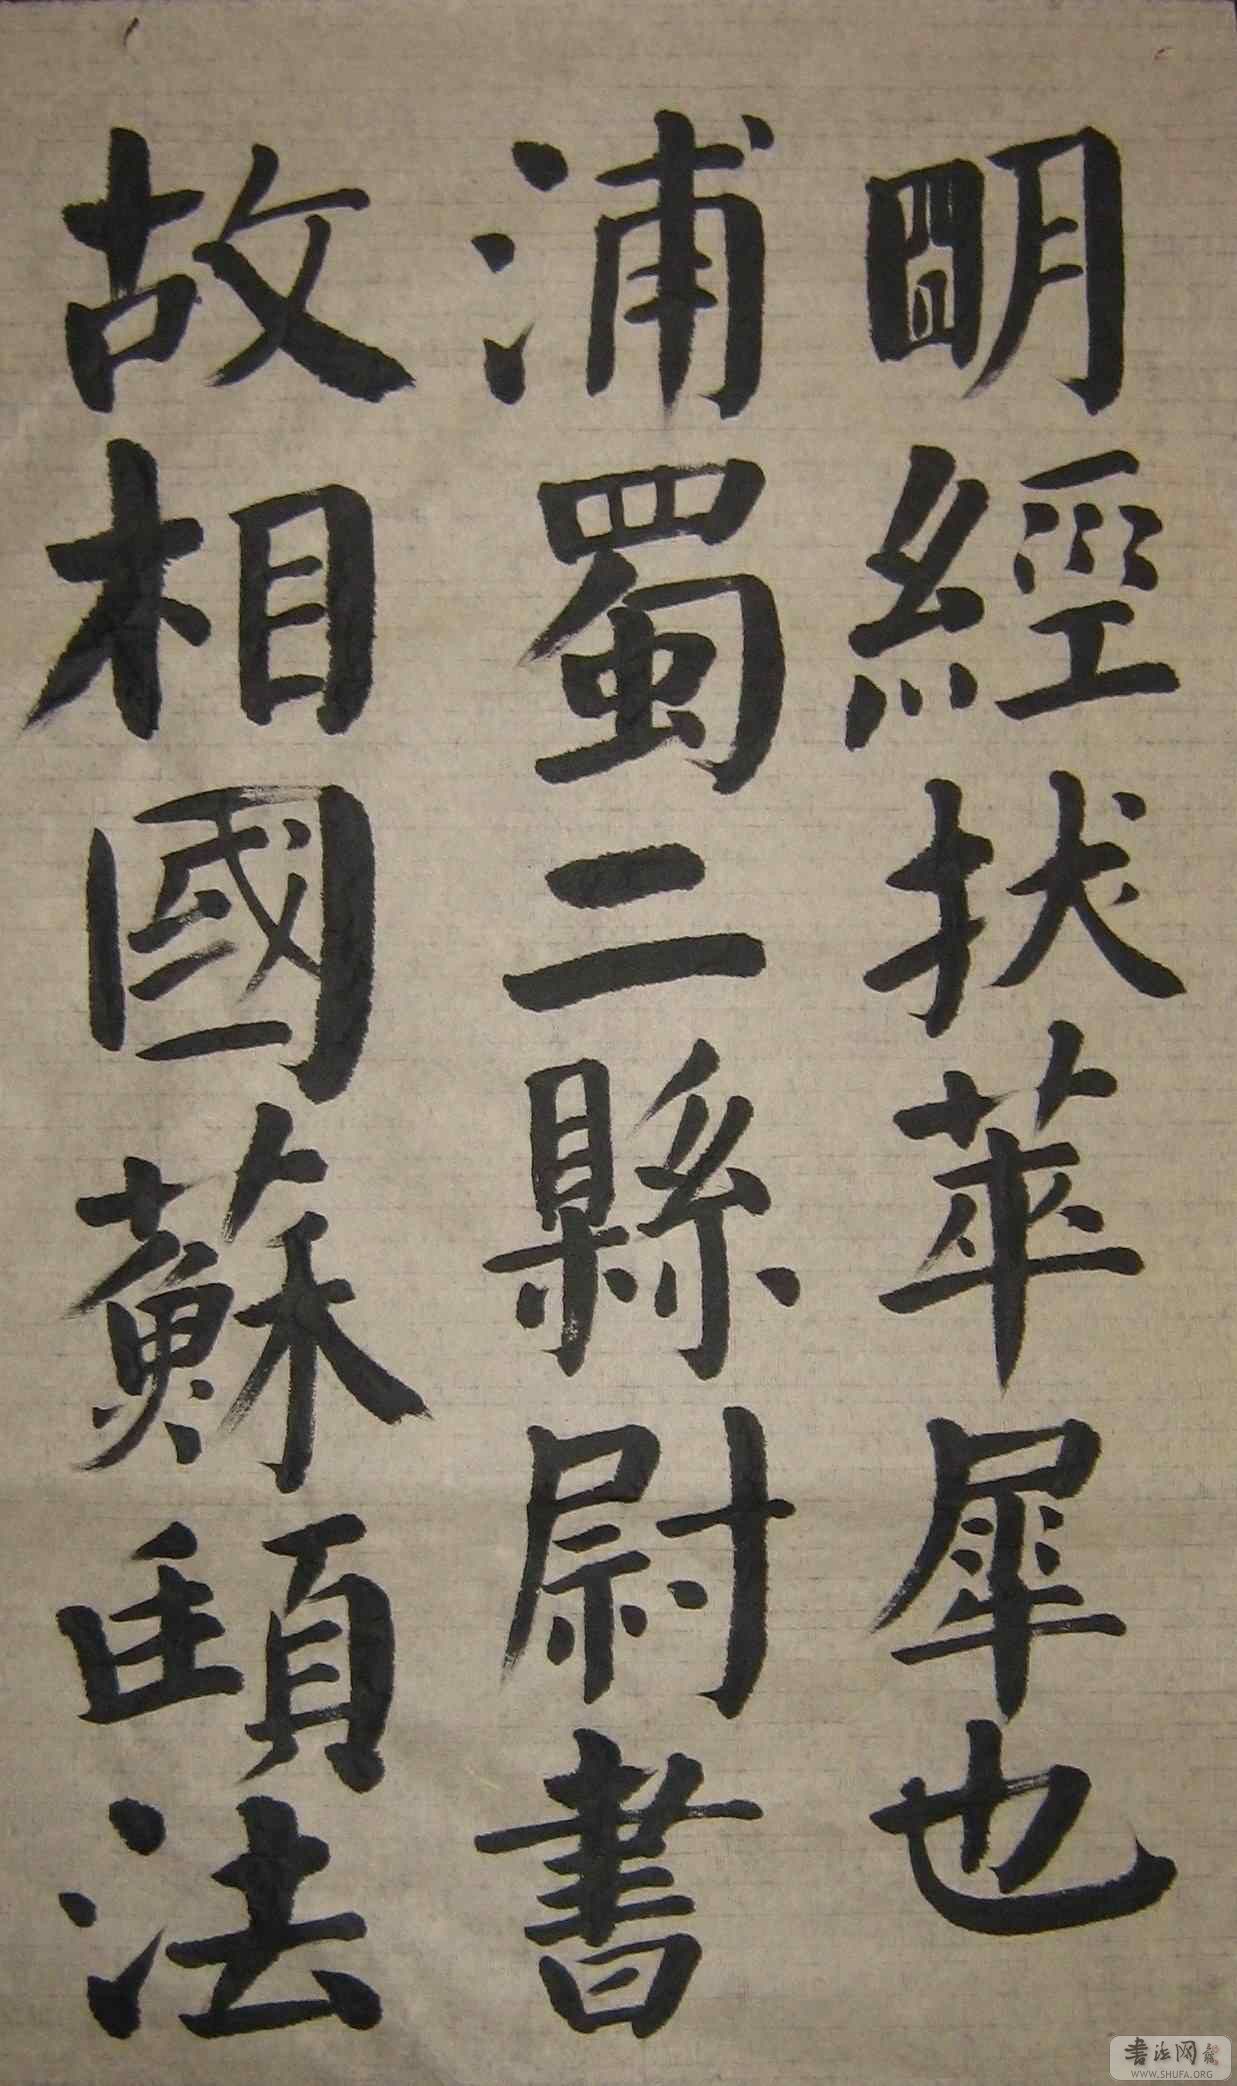 明經扶莘犀也
浦蜀二縣尉書
故相國蘇頲法
書法网
WWW.SHUFA.ORG